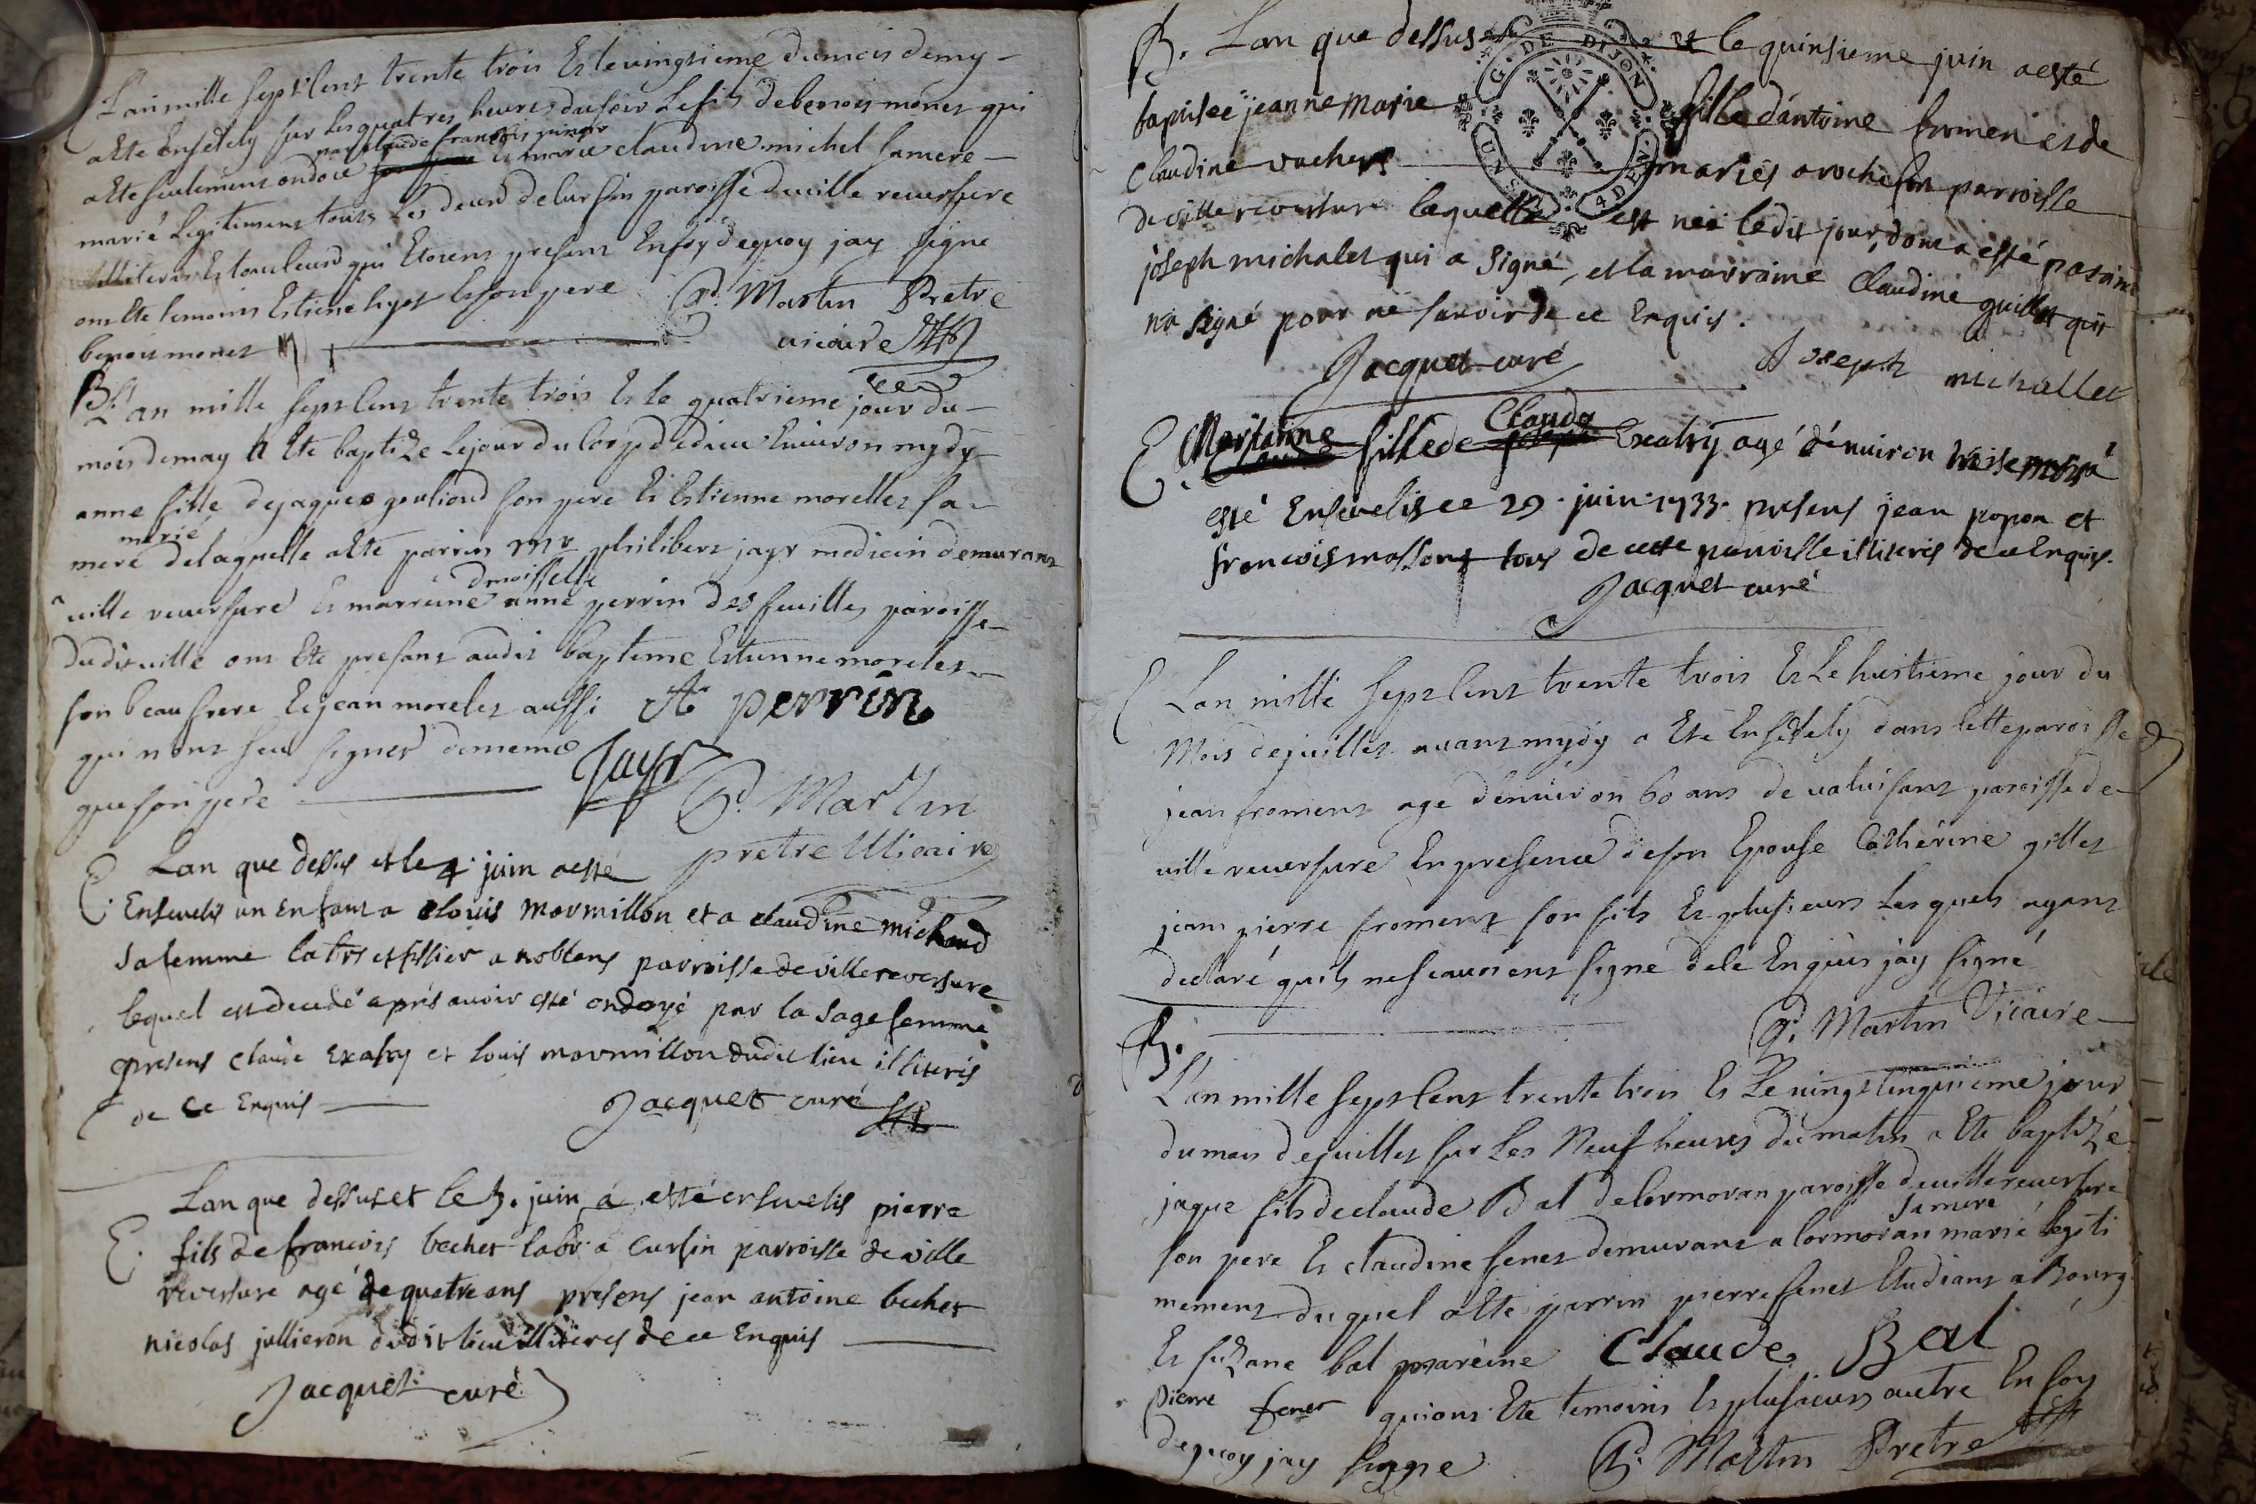 L'an mille sept Cent trente trois Et le vingtieme du mois de my -
a Ete Ensevely sur les quatres heures du soir Le fils de benois monet qui
par claude francois
a Ete seulement ondoié et marie claudine michel sa mere -
marié Legitiment tous Les deux de Cursin paroisse de ville reversure
illiteres Et qui Etoient presens En foy de quoy jay signe
ont Ete temoins Estiene et son pere P. Martin Pretre
benois monet vicaire
B. L'an mille sept Cent trente trois Et le quatrieme jour du -
mois de may A Ete baptize Le jour du Corp de dieu Environ mydy -
anne fille de jaques goutiond son pere Et Estienne morellet sa -
marié
mere de laquelle a Ete parrin mr philibert jayr medicin demurant
dmoisselle
a ville reversure Et marreine anne perrin des feuilles paroisse -
du dit ville ont Ete presant audit baptême Estienne morelet -
son beau frere Et jean morelet aussi A perrin
qui nont seu signer de meme Jayr
que son pere P. Martin
pretre Vicaire
E. Lan que dessus et le 4 juin a esté
Ensevelis un enfant a Louis mormillon et a claudine michaud
sa femme labrs et a noblens parroisse de villereversure
lequel est decedé aprés avoir esté ondoyé par la sage femme
presens claude Exalry et louis mormillon dudit lieu illiteris
de ce Enquis Jacquet curé
Lan que dessus et le 5. juin a esté ensevelis pierre
E. fils de francois bechet labr. a Cursin parroisse de ville
reversure agé de quatre ans presens jean antoine bechet
nicolas jullieron dudit lieu illiteres de ce Enquis
Jacquet curé
B. Lan que dessus et le quinsieme juin a esté
baptisee jeanne Marie fille d'antoine fromen et de
Claudine vachet mariés a rochefon parroisse
de villereversure laquelle est née ledit jour, dont a esté parain
joseph michalet qui a signé, et la marraine Claudine guillot qui
na signé pour ne savoir de ce Enquis.
Jacquet curé Joseph michallet
Claude
E. Marianne fille de Exalry agé d'environ treise mois a
esté Ensevelis ce 29. juin 1733. presens jean popon et
francois massont tous de cette parroisse illiteris de ce Enquis.
Jacquet curé
E L'an mille sept Cent trente trois Et Le huitieme jour du
Mois de juillet avant mydy a Ete Ensevely dans Cette paroisse
jean froment age denviron 60 ans de valuisant paroisse de
ville reversure En presence de son Epouse Cathérine gillet
jean pierre froment son fils Et plusieurs Lesquels ayant
declaré quils ne scauoient signe de Ce Enquis jay signé
P. Martin Vicaire
B.
L'an mille sept Cent trente trois Et Le vingt cinquieme jour
du mois de juillet sur Les Neuf heures du matin a Ete baptizé
jaque fils de claude Bal de lormoran paroisse de ville reversure
sa mere
son pere Et claudine fenet demurant a lormoran marié legiti
mement du quel a Ete parrin pierre fenet Etudiant a Bourg
Et suzane bal maréine Claude Bal
pierre fenet qui ont Ete temoins Et plusieurs autre En foy
de quoy jay signe P. Martin Pretre
G. DE DIJON
4 DEN.